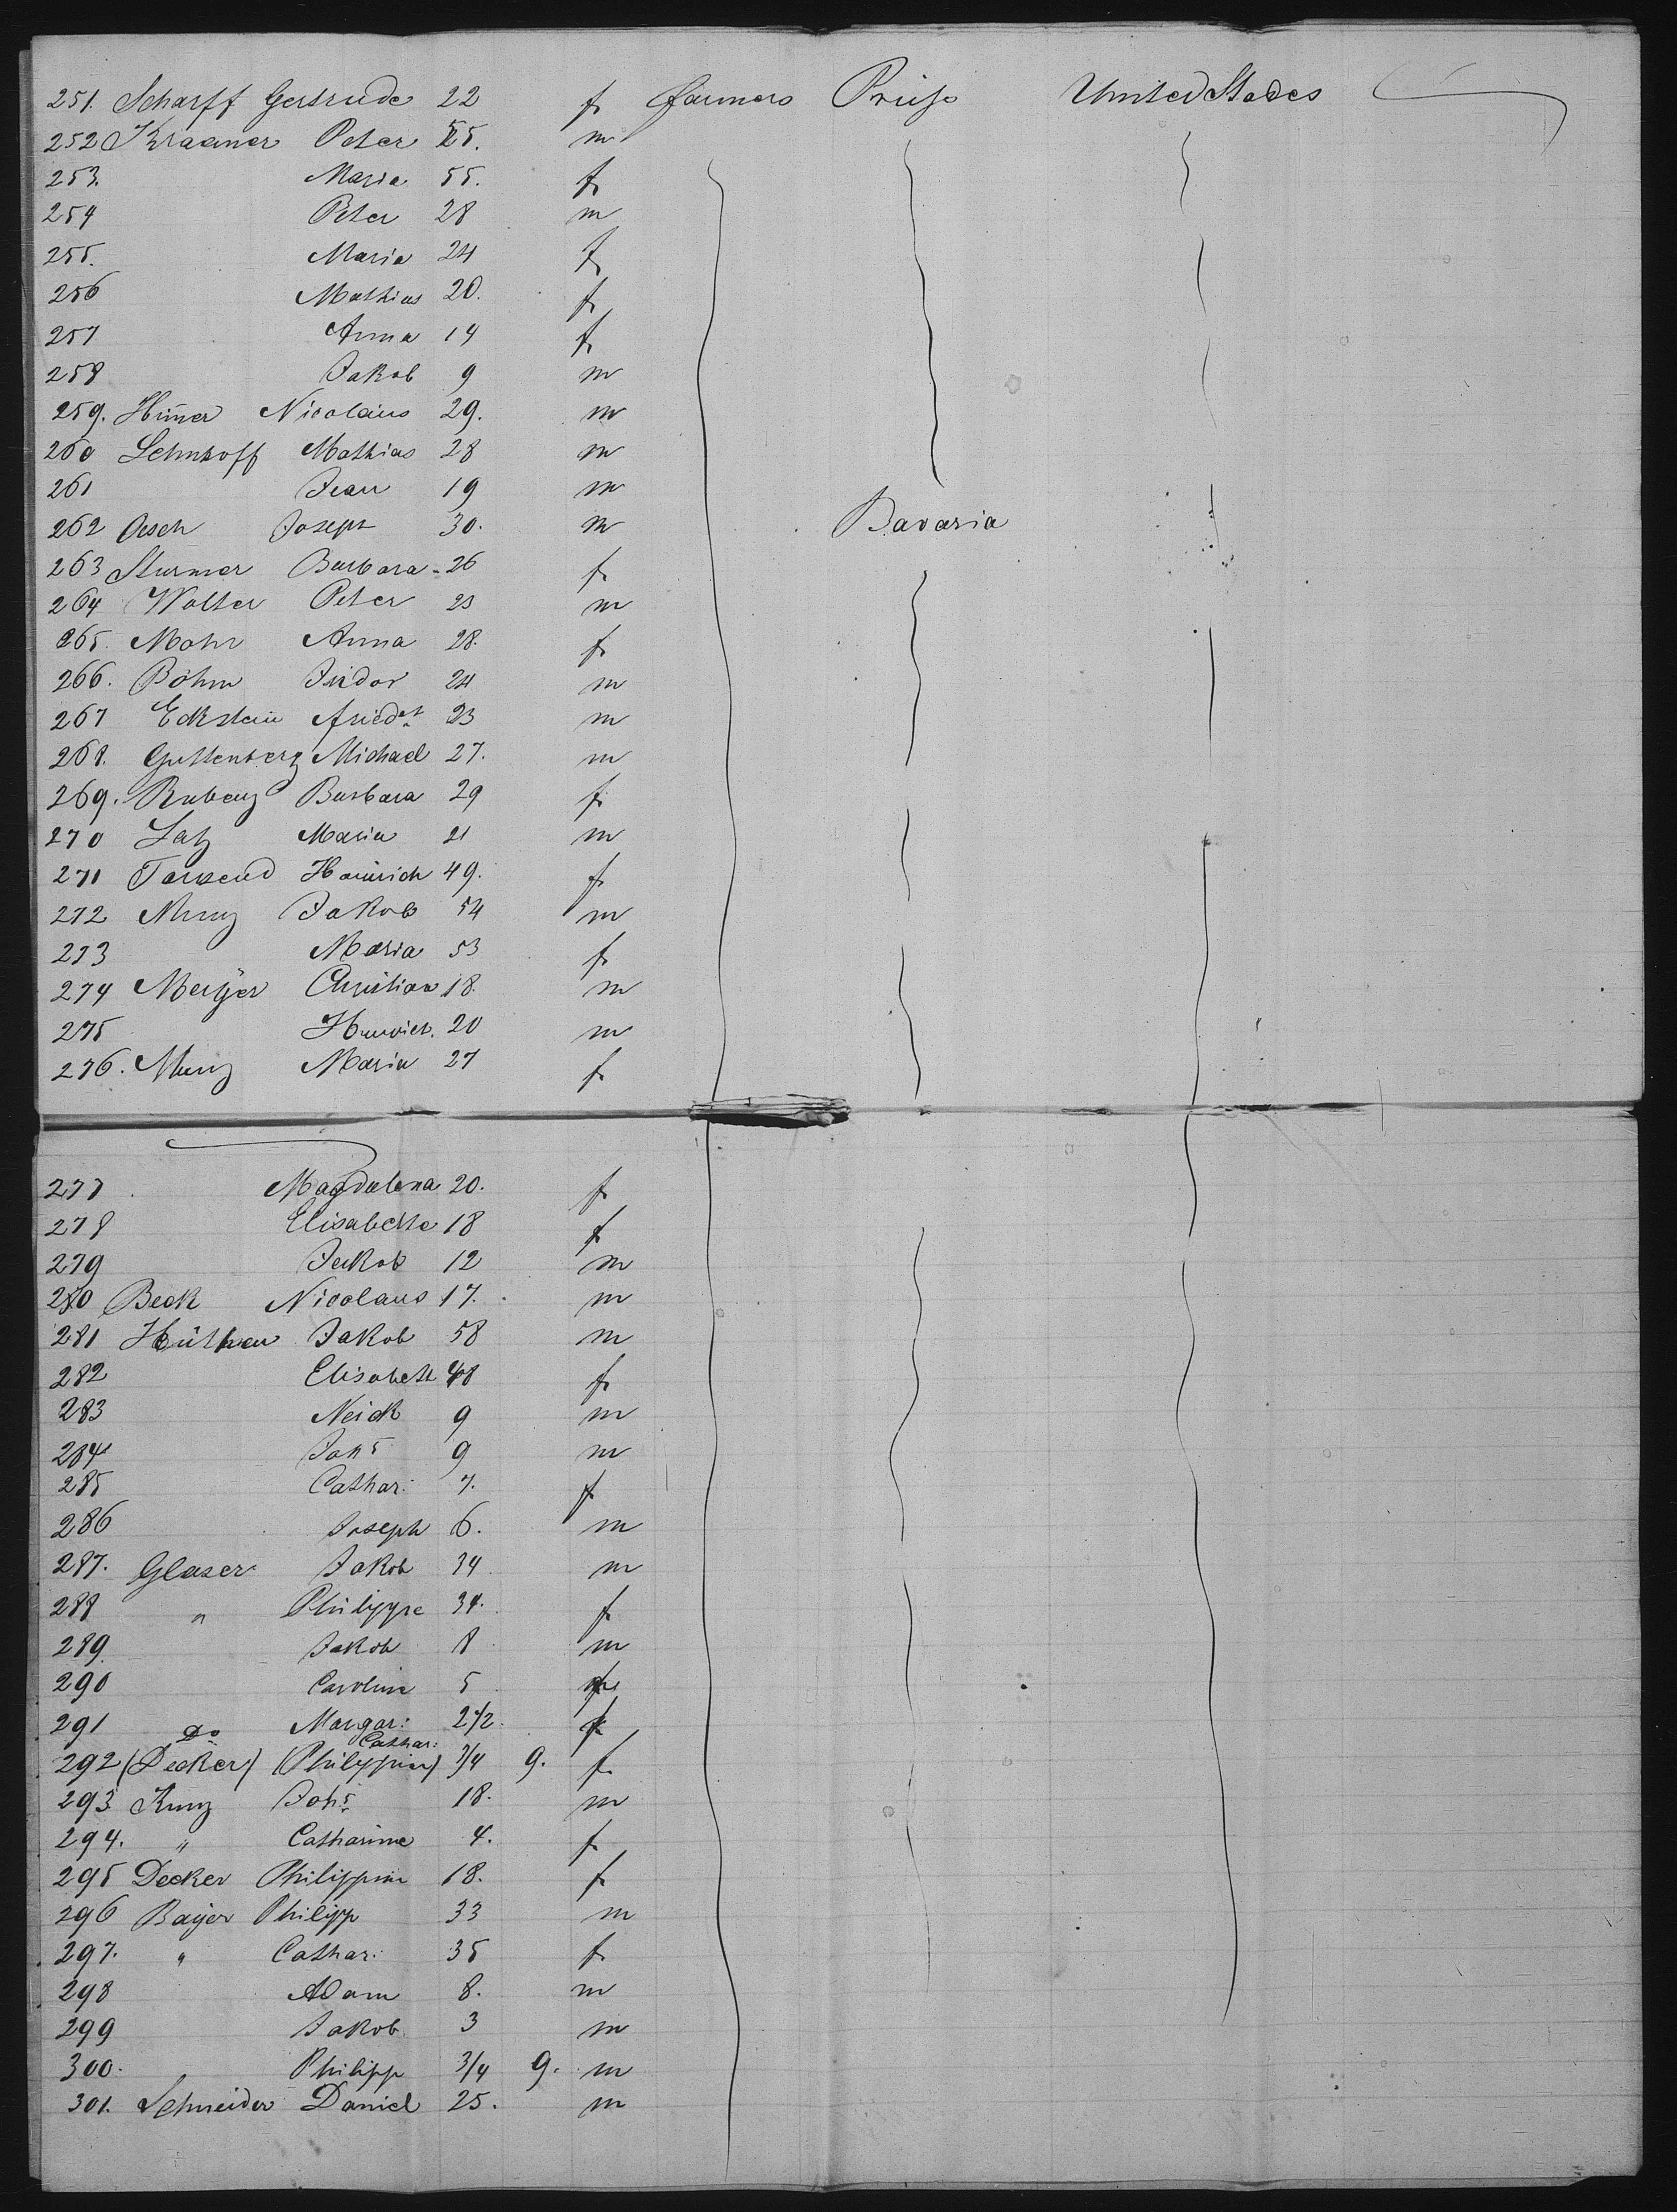 251. Scharff Gertrude 22 f farmers Pruße United States
252 Kraemer Peter 55. m
253. Maria 55. f
254 Peter 28 m
255. Maria 24 f
256 Mathias 20. f
257 Anna 14 f
258 Jakob 9 m
259. Nicolaus 29. m
260 Lehnhoff Mathias 28 m
261 Jean 19 m
262 Oesch Joseph 30. m Bavaria
263 Sturmer Barbara 26 f
264 Wolter Peter 23 m
265. Mohr Anna 28. f
266. Böhm Isidor 24 m
267 Eckstein Friedr 23 m
268. Guttenberg Michael 27. m
269. Rubenz Barbara 29 f
270 Latz Maria 21 m
271 Heinrich 49. f
272 Munz Jakob 54 m
273 Maria 53 f
274 Meyer Christian 18. m
275 20 m
276. Munz Maria 27 f
277 Magdalena 20. f
278 Elisabetha 18 f
279 Jakob 12 m
280 Beck Nicolaus 17. m
281 Jakob 58 m
282 Elisabeth 48 f
283 Neick 9 m
284 Johs 9 m
285 Cathar: 7. f
286 Joseph 6. m
287. Glaser Jakob 34 m
288 " Philippe 34. f
289. Jakob 8 m
290 Carolina 5
291 do Margar: 2 1/2 f
Cathar:
292 (Decker) (Philippin) 3/4 9. f
293 Kunz Johs 18. m
294. " Catharine 4. f
295 Decker Philippin 18. f
296 Bayer Philipp 33 m
297. " Cathar: 35 f
298 Adam 8. m
299 Jakob 3 m
300. Philipp 3/4 9. m
301. Schneider Daniel 25. m